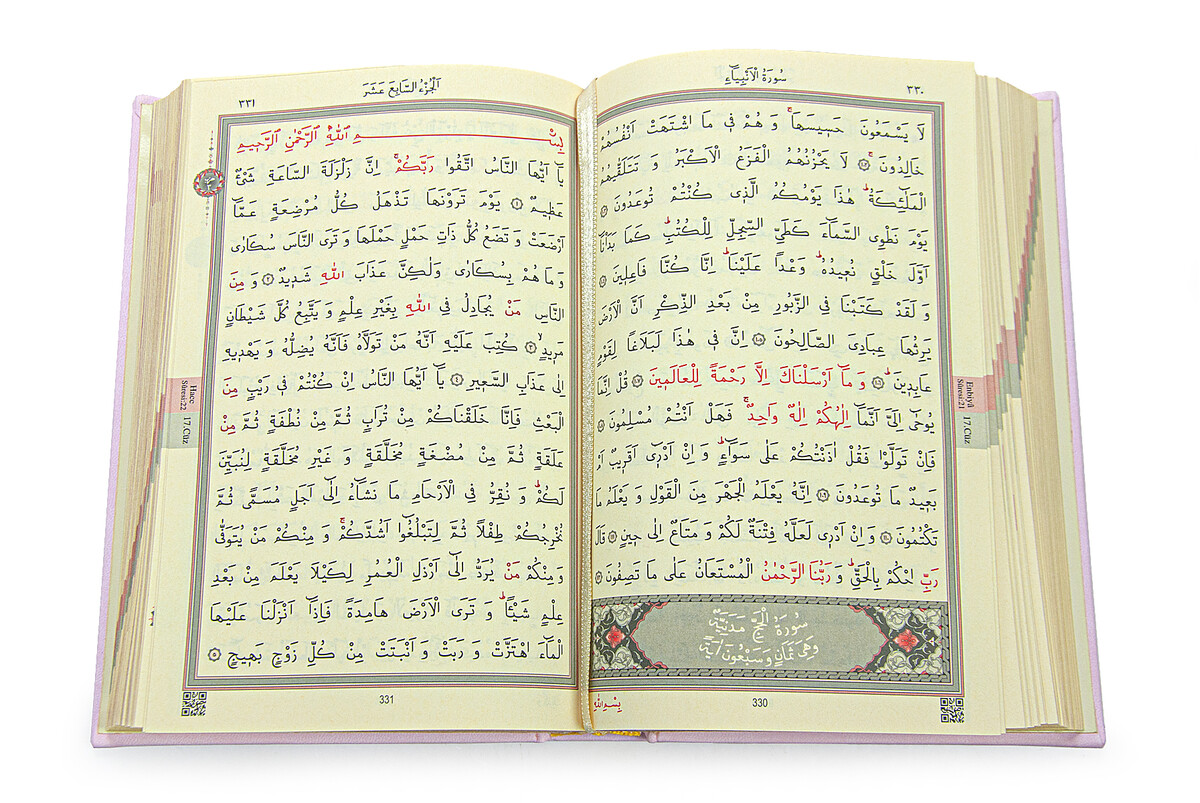 سُورَةُ الْاَنْبِيَاءِ
٣٣٠
لَا يَسْمَعُونَ حَسِيسَهَاۚ وَ هُمْ فٖى مَا اشْتَهَتْ اَنْفُسُهُمْ
خَالِدُونَۚ ﴿١٠٢﴾ لَا يَحْزُنُهُمُ الْفَزَعُ الْاَكْبَرُ وَ تَتَلَقّٰيهُمُ
الْمَلٰٓئِكَةُۜ هٰذَا يَوْمُكُمُ الَّذٖى كُنْتُمْ تُوعَدُونَ ﴿١٠٣﴾
يَوْمَ نَطْوِى السَّمَٓاءَ كَطَىِّ السِّجِلِّ لِلْكُتُبِۜ كَمَا بَدَاْنَٓا
اَوَّلَ خَلْقٍ نُعٖيدُهُۜ وَعْدًا عَلَيْنَاۜ اِنَّا كُنَّا فَاعِلٖينَ ﴿١٠٤﴾
وَ لَقَدْ كَتَبْنَا فِى الزَّبُورِ مِنْ بَعْدِ الذِّكْرِ اَنَّ الْاَرْضَ
يَرِثُهَا عِبَادِىَ الصَّالِحُونَ ﴿١٠٥﴾ اِنَّ فٖى هٰذَا لَبَلَاغًا لِقَوْمٍ
عَابِدٖينَۜ ﴿١٠٦﴾ وَ مَٓا اَرْسَلْنَاكَ اِلَّا رَحْمَةً لِلْعَالَمٖينَ ﴿١٠٧﴾ قُلْ اِنَّمَا
يُوحٰٓى اِلَىَّ اَنَّمَٓا اِلٰهُكُمْ اِلٰهٌ وَاحِدٌۚ فَهَلْ اَنْتُمْ مُسْلِمُونَ ﴿١٠٨﴾
فَاِنْ تَوَلَّوْا فَقُلْ اٰذَنْتُكُمْ عَلٰى سَوَٓاءٍۜ وَ اِنْ اَدْرٖٓى اَقَرٖيبٌ اَمْ
بَعٖيدٌ مَا تُوعَدُونَ ﴿١٠٩﴾ اِنَّهُ يَعْلَمُ الْجَهْرَ مِنَ الْقَوْلِ وَ يَعْلَمُ مَا
تَكْتُمُونَ ﴿١١٠﴾ وَ اِنْ اَدْرٖى لَعَلَّهُ فِتْنَةٌ لَكُمْ وَ مَتَاعٌ اِلٰى حٖينٍ ﴿١١١﴾ قَالَ
رَبِّ احْكُمْ بِالْحَقِّۜ وَ رَبُّنَا الرَّحْمٰنُ الْمُسْتَعَانُ عَلٰى مَا تَصِفُونَ ﴿١١٢﴾
سُورَةُ الْحَجِّ مَدَنِيَّةٌ
وَهِىَ ثَمَانٍ وَ سَبْعُونَ اٰيَةً
بِسْمِ اللّٰهِ
330
Enbiyâ
Sûresi:21
17.Cüz
اَلْجُزْءُ السَّابِعَ عَشَرَ
٣٣١
بِسْمِ اللّٰهِ الرَّحْمٰنِ الرَّحٖيمِ
يَٓا اَيُّهَا النَّاسُ اتَّقُوا رَبَّكُمْۚ اِنَّ زَلْزَلَةَ السَّاعَةِ شَىْءٌ
عَظٖيمٌ ﴿١﴾ يَوْمَ تَرَوْنَهَا تَذْهَلُ كُلُّ مُرْضِعَةٍ عَمَّٓا
اَرْضَعَتْ وَ تَضَعُ كُلُّ ذَاتِ حَمْلٍ حَمْلَهَا وَ تَرَى النَّاسَ سُكَارٰى
وَ مَا هُمْ بِسُكَارٰى وَلٰكِنَّ عَذَابَ اللّٰهِ شَدٖيدٌ ﴿٢﴾ وَ مِنَ
النَّاسِ مَنْ يُجَادِلُ فِى اللّٰهِ بِغَيْرِ عِلْمٍ وَ يَتَّبِعُ كُلَّ شَيْطَانٍ
مَرٖيدٍۙ ﴿٣﴾ كُتِبَ عَلَيْهِ اَنَّهُ مَنْ تَوَلَّاهُ فَاَنَّهُ يُضِلُّهُ وَ يَهْدٖيهِ
اِلٰى عَذَابِ السَّعٖيرِ ﴿٤﴾ يَٓا اَيُّهَا النَّاسُ اِنْ كُنْتُمْ فٖى رَيْبٍ مِنَ
الْبَعْثِ فَاِنَّا خَلَقْنَاكُمْ مِنْ تُرَابٍ ثُمَّ مِنْ نُطْفَةٍ ثُمَّ مِنْ
عَلَقَةٍ ثُمَّ مِنْ مُضْغَةٍ مُخَلَّقَةٍ وَ غَيْرِ مُخَلَّقَةٍ لِنُبَيِّنَ
لَكُمْۜ وَ نُقِرُّ فِى الْاَرْحَامِ مَا نَشَٓاءُ اِلٰٓى اَجَلٍ مُسَمًّى ثُمَّ
نُخْرِجُكُمْ طِفْلًا ثُمَّ لِتَبْلُغُٓوا اَشُدَّكُمْۚ وَ مِنْكُمْ مَنْ يُتَوَفّٰى
وَ مِنْكُمْ مَنْ يُرَدُّ اِلٰٓى اَرْذَلِ الْعُمُرِ لِكَيْلَا يَعْلَمَ مِنْ بَعْدِ
عِلْمٍ شَيْـًٔاۜ وَ تَرَى الْاَرْضَ هَامِدَةً فَاِذَٓا اَنْزَلْنَا عَلَيْهَا
الْمَٓاءَ اهْتَزَّتْ وَ رَبَتْ وَ اَنْبَتَتْ مِنْ كُلِّ زَوْجٍ بَهٖيجٍ ﴿٥﴾
331
Hacc
Sûresi:22
17.Cüz